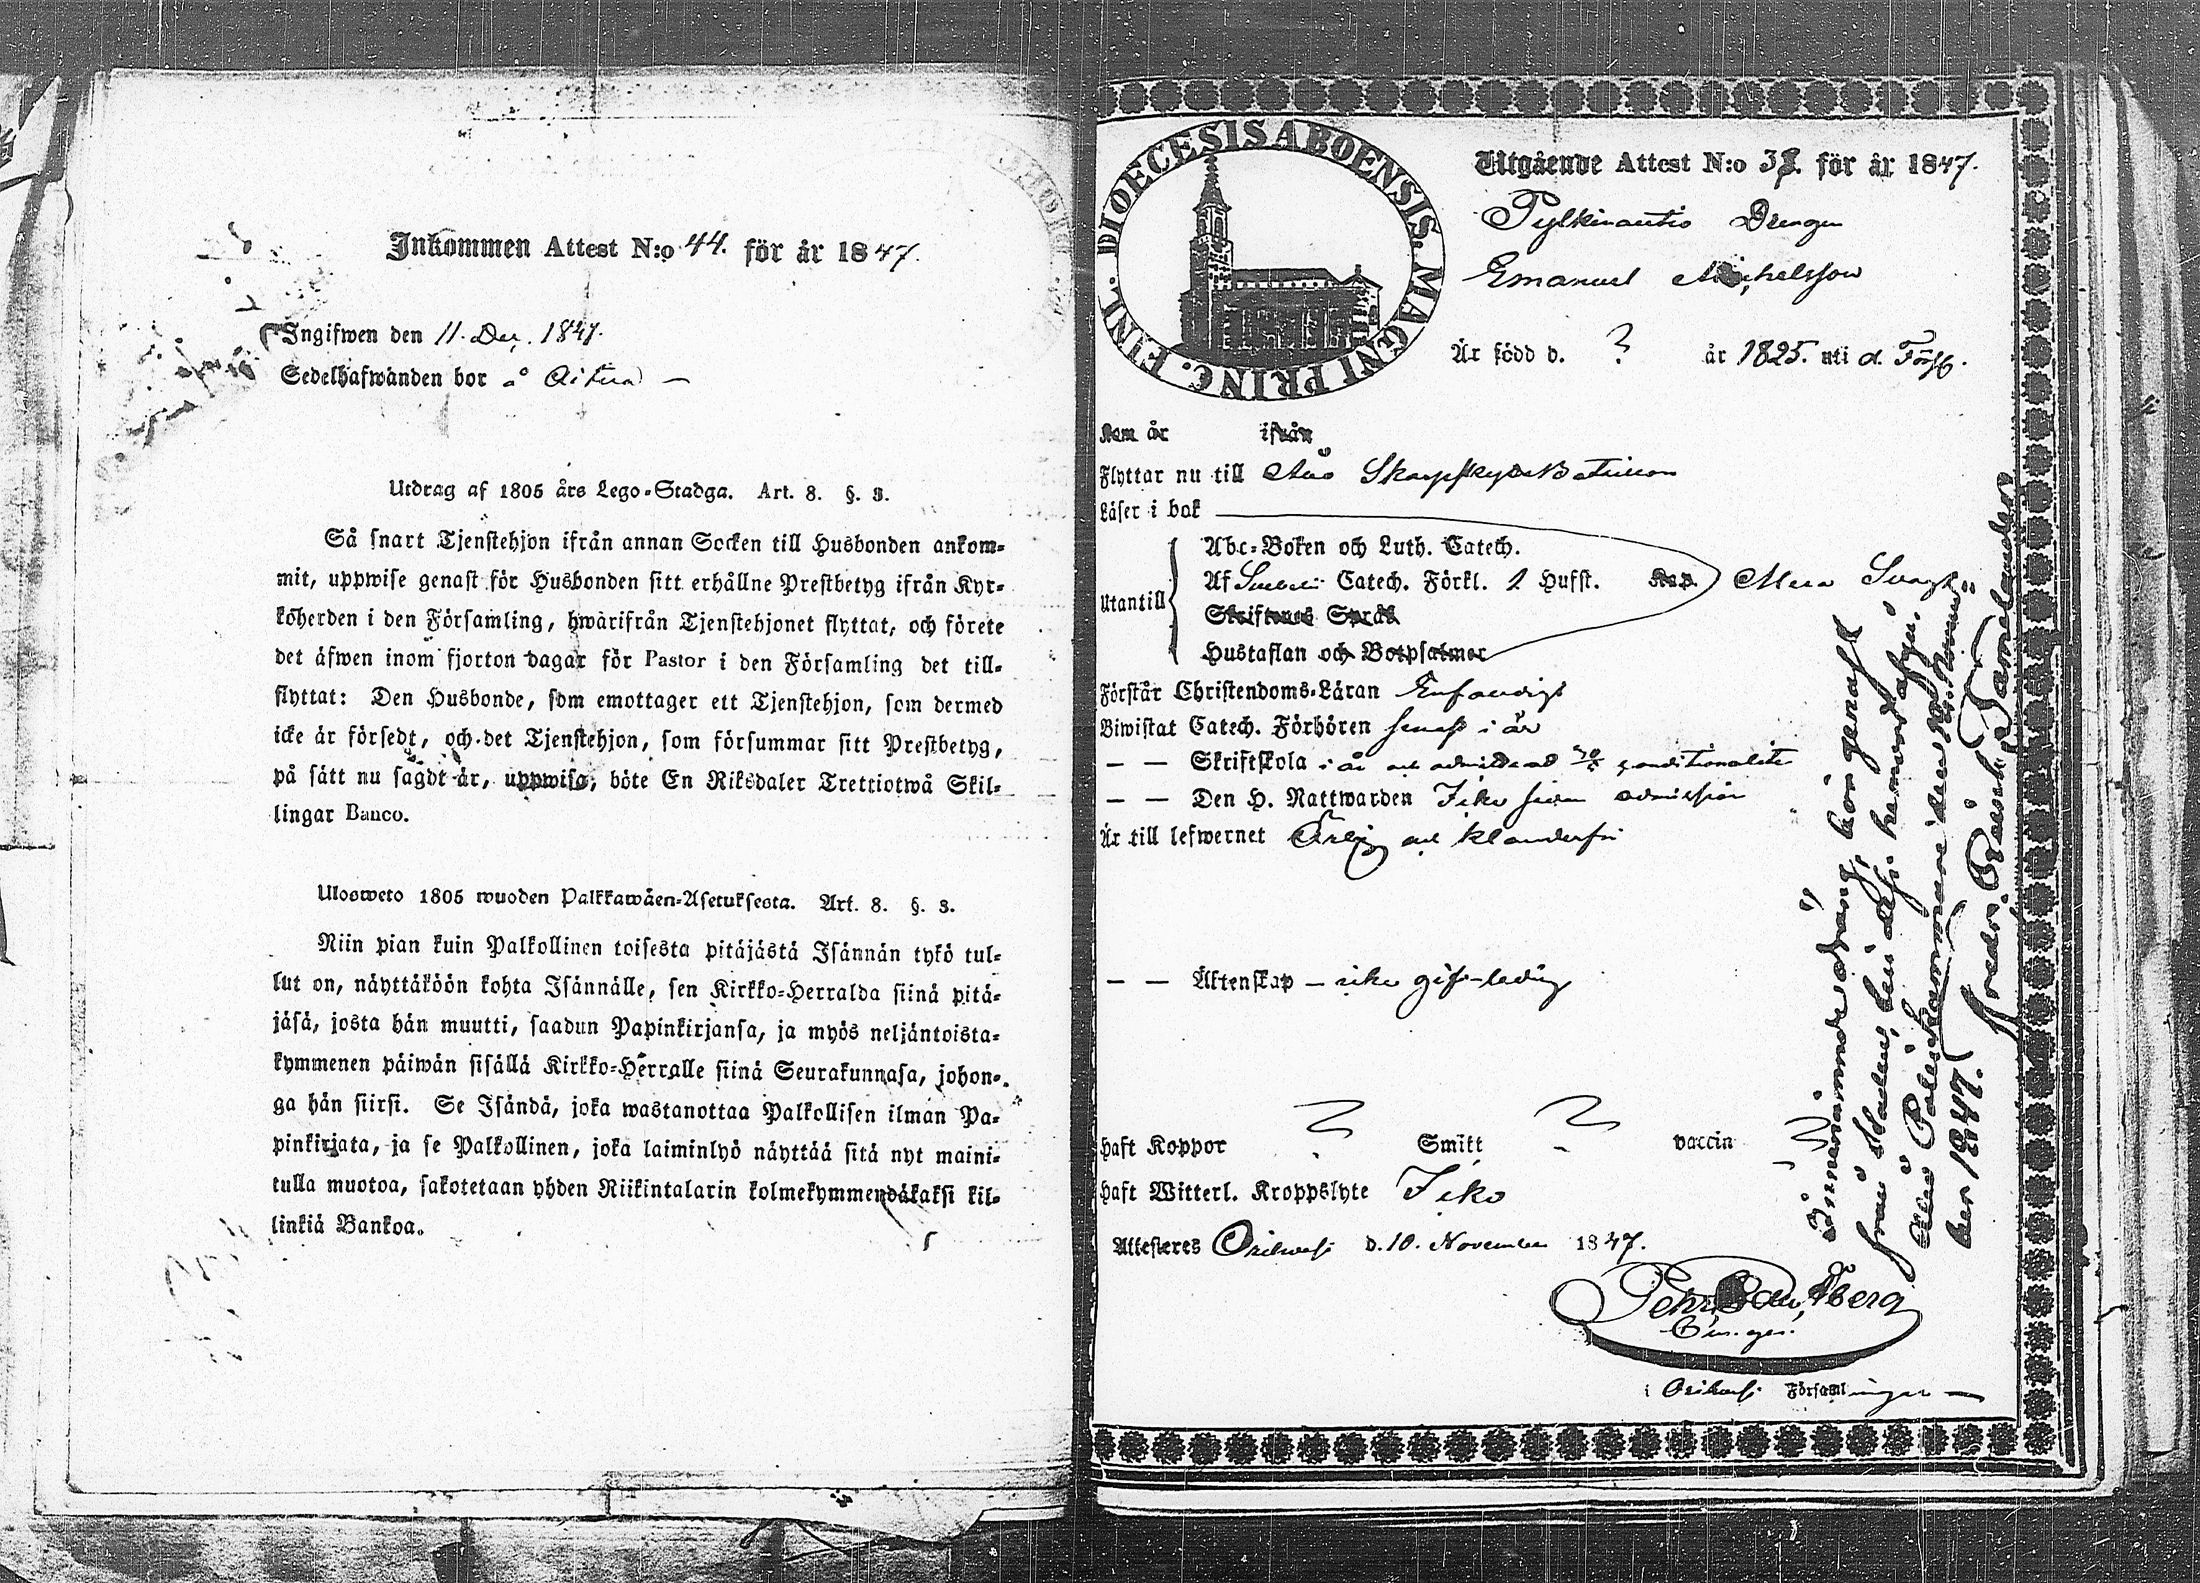 Inkommen Attest N:o 44. för år 1847.
Ingifwen den 11. Dec. 1847.
Sedelhafwanden bor å
Utdrag af 1805 års Lego-Stadga. Art. 8. §. 3.
Så snart Tjenstehjon ifrån annan Socken till Husbonden ankom-
mit, uppwise genast för Husbonden sitt erhållne Prestbetyg ifrån Kyr-
koherden i den Församling, hwarifrån Tjenstehjonet flyttat, och förete
det äfwen inom fjorton dagar för Pastor i den Församling det till-
flyttat: Den Husbonde, som emottager ett Tjenstehjon, som dermed
icke är försedt, och det Tjenstehjon, som försummar sitt Prestbetyg,
på sätt nu sagdt är, uppwisa, böte En Riksdaler Trettiotwå Skil-
lingar Banco.
Ulosweto 1805 wuoden Palkkawäen-Asetuksesta. Art. 8. §. 3.
Niin pian kuin Palkollinen toisesta pitäjästä Isännän tykö tul-
lut on, näyttäköön kohta Isännälle, sen Kirkko-Herralda siinä pitä-
jäsä, josta hän muutti, saadun Papinkirjansa, ja myös neljäntoista-
kymmenen päiwän sisällä Kirkko-Herralle siinä Seurakunnasa, johon-
ga hän siirsi. Se Isändä, joka wastanottaa Palkollisen ilman Pa-
pinkirjata, ja se Palkollinen, joka laiminlyö näyttää sitä nyt maini-
tulla muotoa, sakotetaan yhden Riikintalarin kolmekymmendäkaksi kil-
linkiä Bankoa.
DIOECESIS ABOENSIS. MAGNI PRINC. FINL.
Utgående Attest N:o 38. för år 1847.
Drengen
Emanuel Michelsson
Är född d. ? år 1825. uti d. Förs.
Kom år ifrån
Flyttar nu till Åbo Skarpskytte Bataillon
Läser i bok
Abc-Boken och Luth. Catech.
Utantill Af Catech. Förkl. 1 Hufst. Kap.
Skriftenes Språk
Hustaflan och Botpsalmer
Förstår Christendoms-Läran Enfaldigt
Biwistat Catech. Förhören senast i år
— — Skriftskola i år
— — Den H. Nattwarden Icke sedan admission
Är till lefwernet Ärlig och klanderfri
— — Äktenskap — icke gift – ledig
Haft Koppor ? Smitt ? vaccin
Haft Witterl. Kroppslyte Icke
Attesteres Orihwesi d. 10. November 1847.
i Orihwesi Församlingen —
Ofwannämnde dräng bör genast
från Staden
Åbo Poliskammare den
ber 1847.